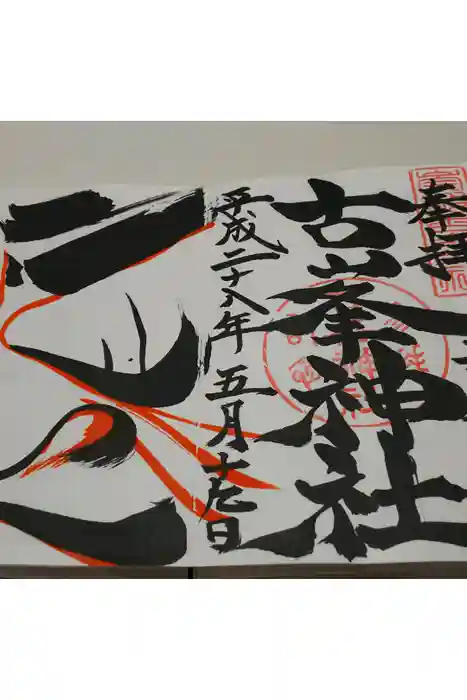 奉拝
古峯神社
平成二十八年五月十七日